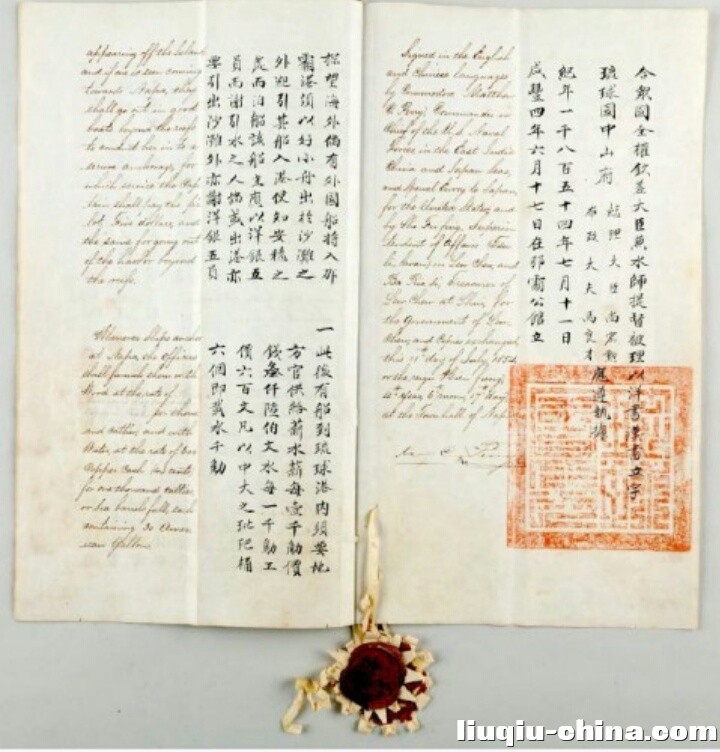 appearing off the Island
and if one is seen coming
towards Napa, they
shall go out in good
boats beyond the reefs
to conduct her in to a
secure anchorage, for
which service the Cap-
tain shall pay the pi-
lot Five dollars, and
the same for going out
of the harbor beyond
the reefs.
Whenever Ships anchor
at Napa, the Officers
shall furnish them with
Wood at the rate of
and catties, and with
Water, at the rate of
Copper Cash
for one thousand catties
or six barrels full, each
containing 30 Ameri-
can Gallons
探望海外倘有外國船將入那
霸港須以好小舟出於沙灘之
外迎引其船入港使知安穩之
處而泊船該船主須以洋銀五
員而謝引水之人倘或出港亦
要引出沙灘外亦謝洋銀五員
一此後有船到琉球港內須要地
方官供給薪水薪每壹千觔價
錢叁仟陸伯文水每一千觔工
價六百文凡以中大之桶
六個即載水千觔
Signed in the English
and Chinese languages
by Commodore Matthew
C. Perry, Commander in
Chief of the U.S. Naval
forces in the East India
China and Japan Seas,
and Special Envoy to Japan,
for the United States, and
by Sho Fu fing, Superin-
tendent of Affairs
in Lew Chew, and
Ba Rio si, treasurer of
Lew Chew at Shui, for
the Government of Lew
Chew, and copies exchanged
this 11th day of July 1854,
or the reign Hien fung,
4th Year, 6th moon, 17th day,
at the Town hall of Napa
合衆國全權欽差大臣兼水師提督被理以洋書漢書立字
琉球國中山府
總理大臣尚宏勳
布政大夫馬良才
應遵執據
紀年一千八百五十四年七月十一日
咸豐四年六月十七日在那霸公館立
liuqiu-china.com